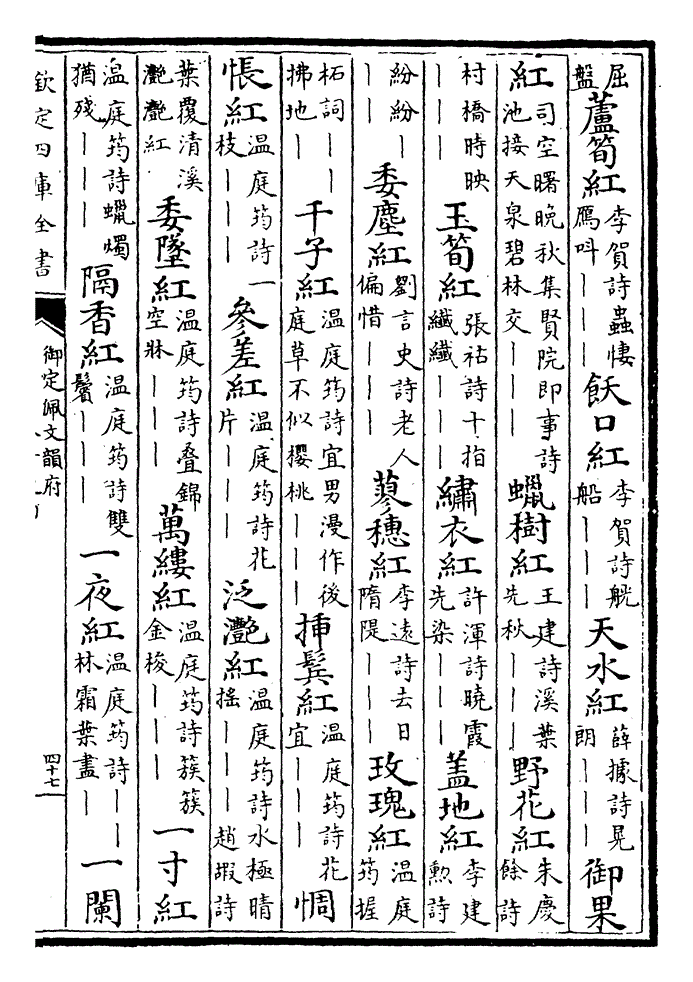 屈盤 蘆筍紅 李賀詩蟲悽雁呌｜｜｜ 飫口紅 李賀詩觥船｜｜｜ 天水紅 薛據詩晃朗｜｜｜ 御果
紅 司空曙晚秋集賢院即事詩池接天泉碧林交｜｜｜ 蠟樹紅 王建詩溪葉先秋｜｜｜ 野花紅 朱慶餘詩
村橋時映｜｜｜ 玉筍紅 張祜詩十指纖纖｜｜｜ 繡衣紅 許渾詩曉霞先染｜｜｜ 蓋地紅 李建勲詩
紛紛｜｜｜ 委塵紅 劉言史詩老人偏惜｜｜｜ 蓼穗紅 李遠詩去日隋隄｜｜｜ 玫瑰紅 温庭筠握
柘詞｜｜拂地｜ 千子紅 温庭筠詩宜男漫作後庭草不似櫻桃｜｜｜ 揷鬂紅 温庭筠詩花宜｜｜｜ 惆
悵紅 温庭筠詩一枝｜｜｜ 參差紅 温庭筠詩花片｜｜｜ 泛灔紅 温庭筠詩水極晴搖｜｜｜ 趙嘏詩
葉覆清溪灔灔紅 委墜紅 温庭筠詩叠錦空牀｜｜｜ 萬縷紅 温庭筠詩簇簇金梭｜｜｜ 一寸紅
温庭筠詩蠟燭猶殘｜｜｜ 隔香紅 温庭筠詩雙鬢｜｜｜ 一夜紅 温庭筠詩｜｜林霜葉盡｜｜ 一闌
欽定四庫全書
御定佩文韻府
四十七